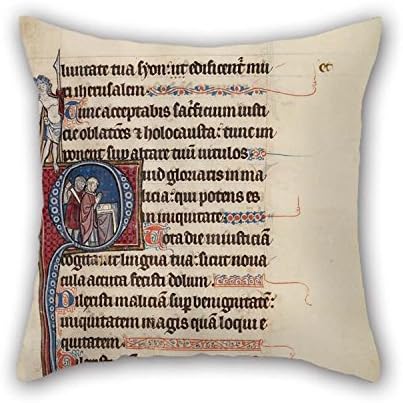 luntate tua syon: ut edificent̃ mu
ri iherusalem.
Tunc acceptabis sacrificium iusti
cie oblatões et holocausta: tunc im
ponent sup altare tuũ vitulos.
Quid gloriaris in ma
licia: qui potens es
in iniquitate.
Tota die iniusticiã
cogitavit lingua tua: sicut nova
cula acuta fecisti dolum.
Dilexisti maliciam sup benignitatẽ:
iniquitatem magis quã loqui e
quitatem.